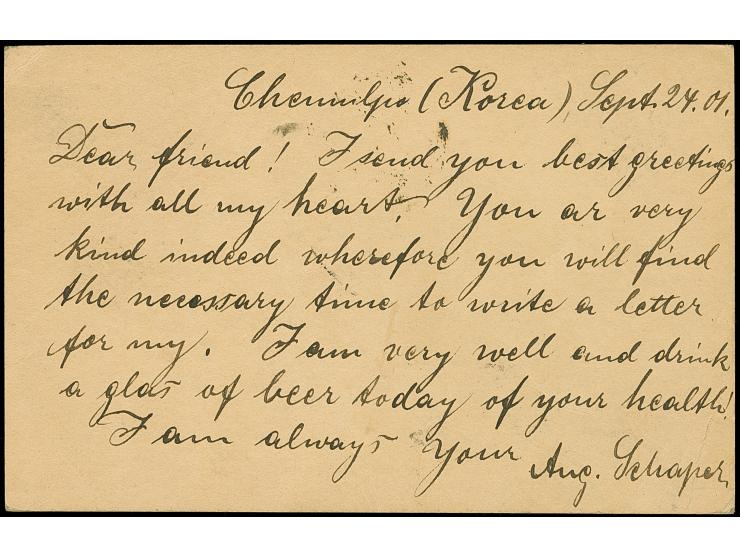 Chemulpo (Korea), Sept. 24. 01.
Dear friend! I send you best greetings
with all my heart. You ar very
kind indeed wherefore you will find
the necessary time to write a letter
for my. I am very well and drink
a glas of beer today of your health!
I am always Your Aug. Schaper.